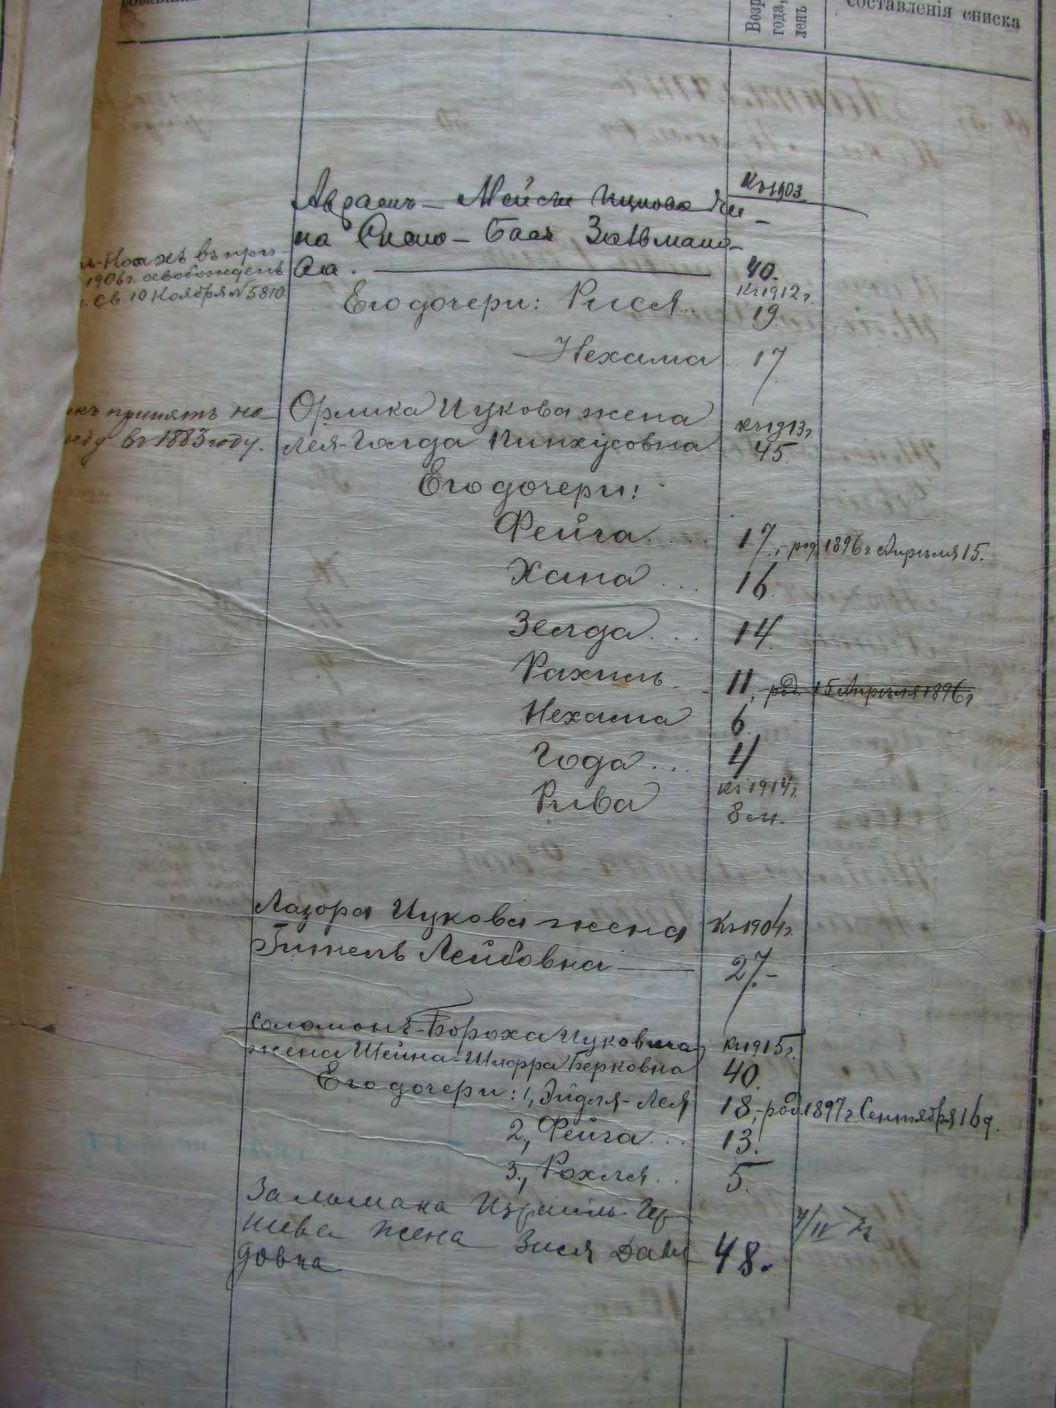 составленія списка
Возр
года,
лень
Къ 1903
Авраамъ-Мейсы Ицкова же-
на Сислю-Бася Зальмано-
ва. 40.
л-Ноахъ въ при
1906 г. освобожденъ
Св. 10 Ноября № 5810
Къ 1912 г.
Его дочери: Рися.. 19
Нехама 17
къ принятъ на
въ 1883 году.
Орлика Ицкова жена Къ 1913 г.
Лея-Голда Пинхусовна 45.
Его дочери:
Фейга... 17, - род. 1896 г. Апрѣля 15.
Хана... 16.
Зелда... 14.
Рахиль.. 11, род. 15 Апрѣля 1896 г.
Нехама 6.
Года... 4
Къ 1914 г.
Рива 8 м.
Лазоря Ицкова жена Къ 1904 г.
Гитель Лейбовна — 27.-
Соломонъ-Бороха Ицковича Къ 1915 г.
жена Шейна-Шифра Берковна 40.
Его дочери: 1, Эйдля-Лея 18, - род. 1897 г. Сентября 16 д.
2, Фейга... 13.
3, Рохля.. 5.
Залымана Израиль Гер
шева жена Зися Дави
довна 48.